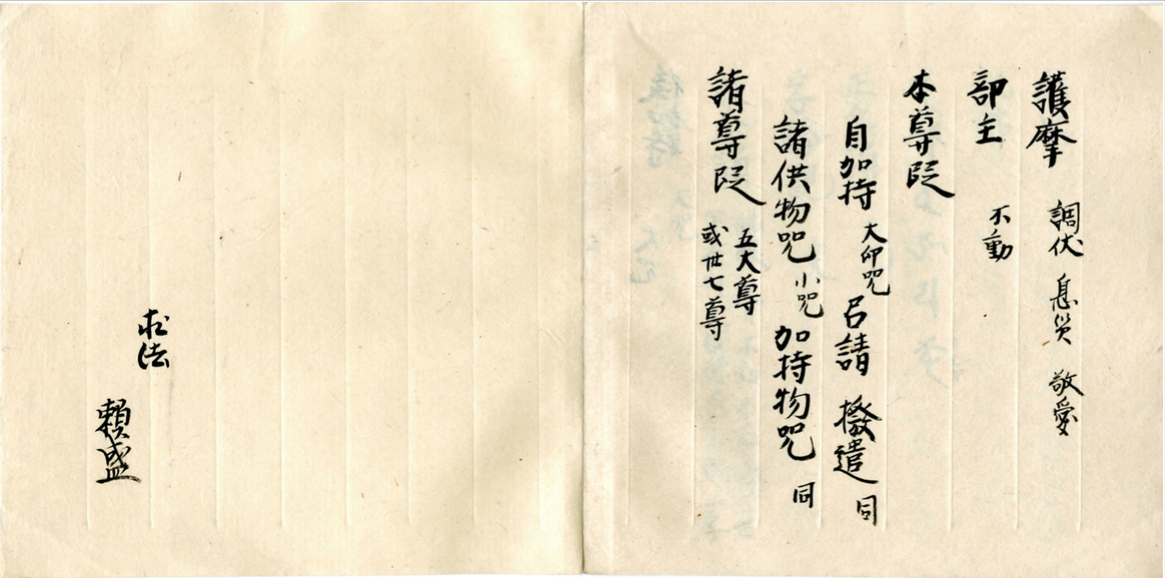 護摩 調伏 息災 敬愛
部主 不動
本尊段
自加持 大印咒 召請 撥遣 同
諸供物咒 小咒 加持物咒 同
諸尊段 五大尊
或卅七尊
求法
賴盛